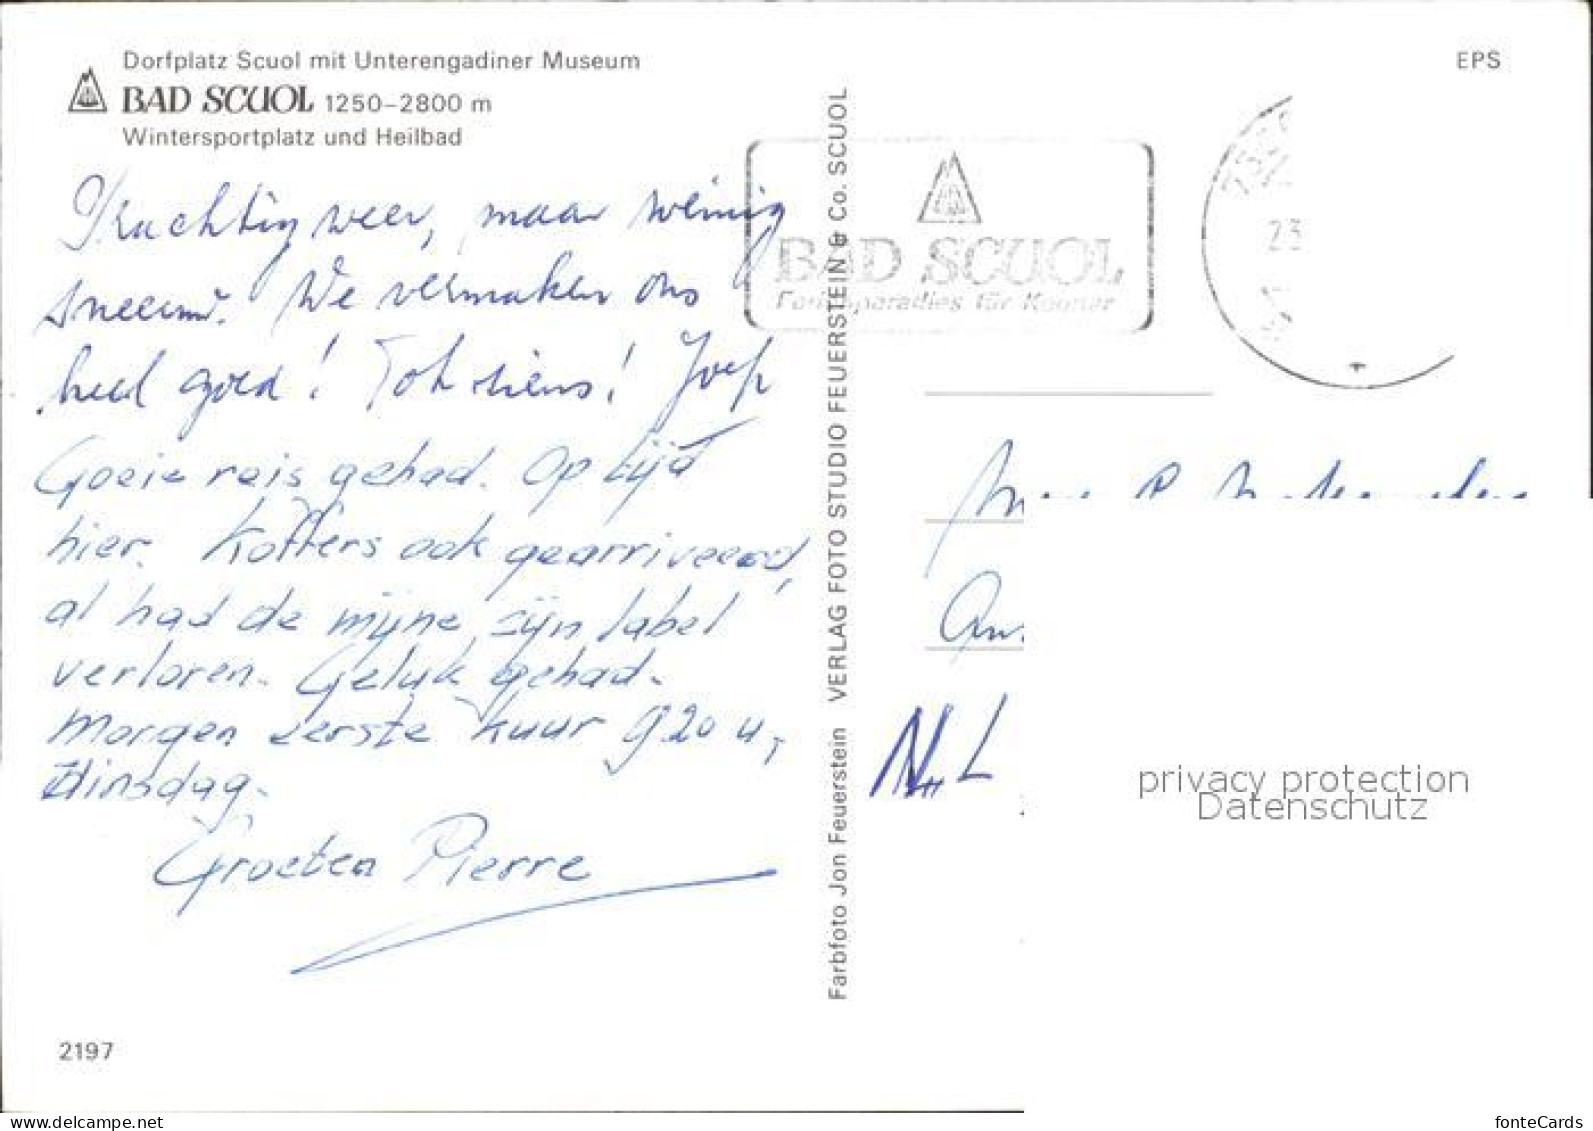 Dorfplatz Scuol mit Unterengadiner Museum
BAD SCUOL 1250–2800 m
Wintersportplatz und Heilbad
EPS
Prachtig weer, maar weinig
sneeuw. We vermaken ons
heel goed! Tot ziens! Joep
Goeie reis gehad. Op tijd
hier. Koffers ook gearriveerd,
al had de mijne zijn label
verloren. Geluk gehad.
Morgen eerste kuur 9 20 u,
dinsdag.
Groeten Pierre
2197
Farbfoto Jon Feuerstein VERLAG FOTO STUDIO FEUERSTEIN & Co. SCUOL
BAD SCUOL
Ferienparadies für Kenner
23
privacy protection
Datenschutz
fonteCards
www.delcampe.net